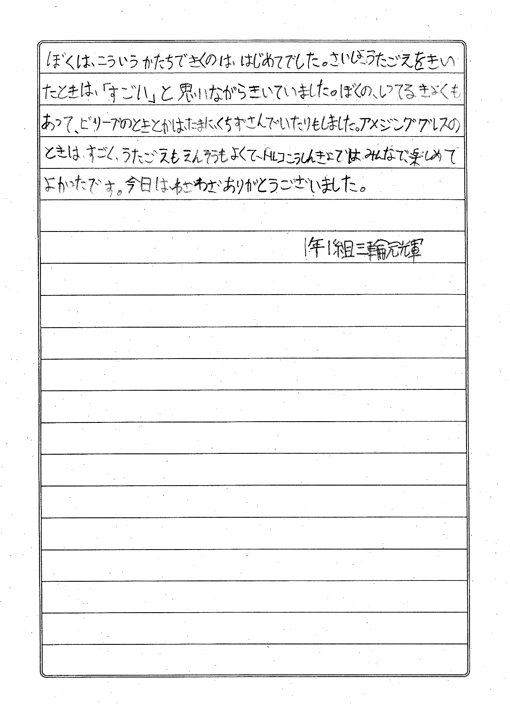 ぼくは、こういうかたちできくのは、はじめてでした。さいしょうたごえをきい
たときは、「すごい」と思いながらきいていました。ぼくの、しってるきょくも
あって、ビリーブのときとかはたまに、くちずさんでいたりもしました。アメジンググレスの
ときは、すごく、うたごえもえんそうもよくて、トルコこうしんきょくではみんなで楽しめて
よかったです。今日はわざわざありがとうございました。
1年1組三輪元輝